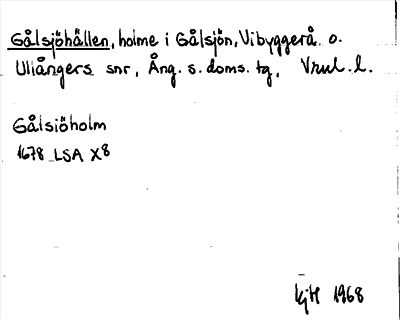 Gålsjöhällen, holme i Gålsjön, Vibyggerå o.
Ullångers snr, Ång. s. doms. tg, Vnul. l.
Gålsiöholm
1678 LSA X8
KjH 1968